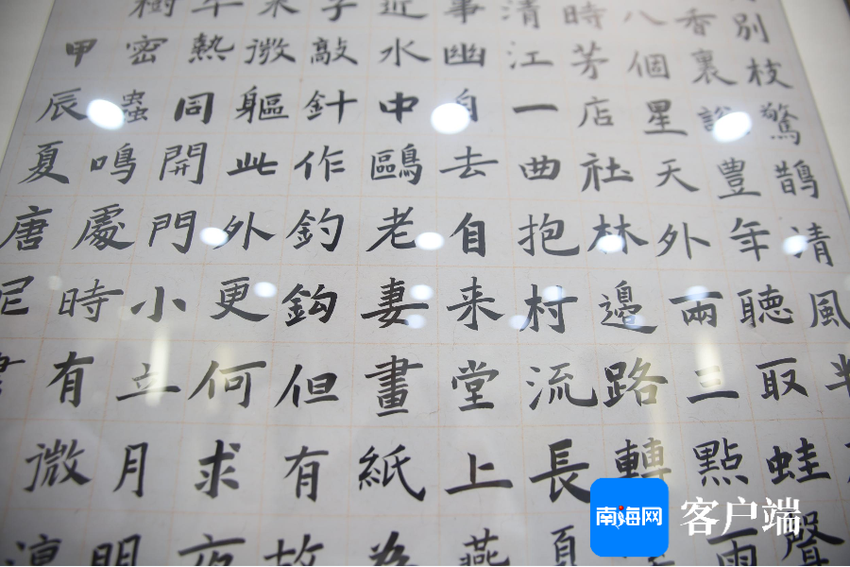 別枝驚鵲清風半
香裏說豊年聽取蛙聲
八個星天外兩三點雨
時芳店社林邊路轉
清江一曲抱村流長夏
事幽自去自来堂上燕
近水中鷗老妻畫紙為
子敲針作釣鈎但有故
微軀此外更何求夜
熱同開門外小立月明
樹密蟲鳴處時有微凉
甲辰夏唐尼書
南海网 客户端